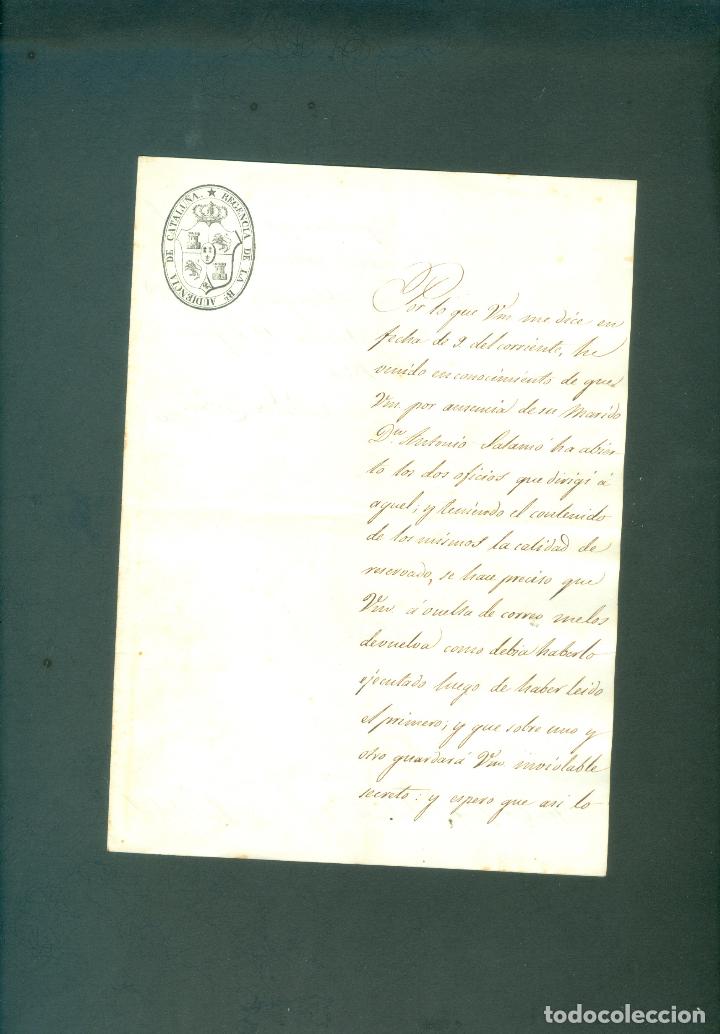 REGENCIA DE LA Rl. AUDIENCIA DE CATALUÑA.
Por lo que Vm. me dice en
fecha de 9. del corriente, he
venido en conocimiento de que
Vm. por ausencia de su Marido
Dn. Antonio Salamó ha abier-
to los dos oficios que dirigí á
aquel; y teniendo el contenido
de los mismos la calidad de
reservado, se hace preciso que
Vm. á vuelta de correo me los
devuelva como debia haberlo
ejecutado luego de haber leido
el primero; y que sobre uno y
otro guardará Vm. inviolable
secreto: y espero que asi lo
todocoleccion